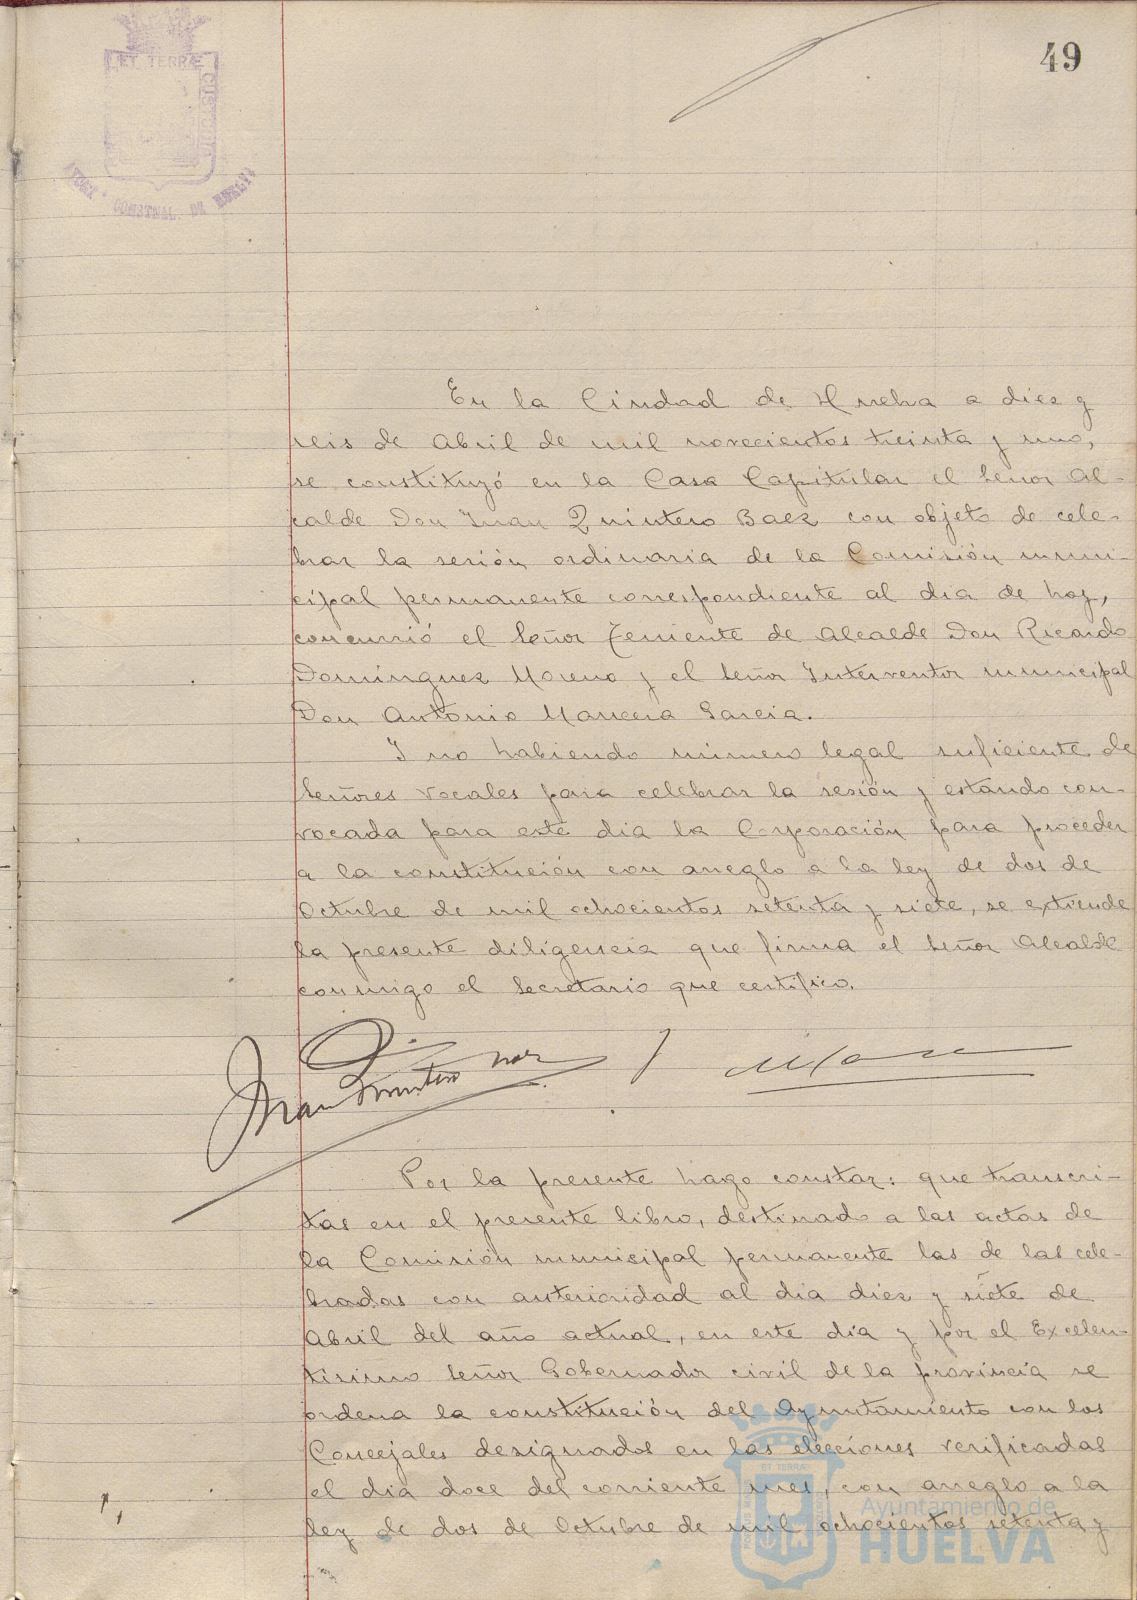 49
ET TERRÆ
CUSTODIA
CONSTNAL. DE HUELVA
En la Ciudad de Huelva a diez y
seis de Abril de mil novecientos treinta y uno,
se constituyó en la Casa Capitular el Señor Al-
calde Don Juan Quintero Baez con objeto de cele-
brar la sesión ordinaria de la Comisión muni-
cipal permanente correspondiente al dia de hoy,
concurrió el Señor Teniente de Alcalde Don Ricardo
Dominguez Moreno y el Señor Interventor municipal
Don Antonio Mancera Garcia.
Y no habiendo número legal suficiente de
Señores Vocales para celebrar la sesión y estando con-
vocada para este dia la Corporación para proceder
a la constitución con arreglo a la ley de dos de
Octubre de mil ochocientos setenta y siete, se extiende
la presente diligencia que firma el Señor Alcalde
conmigo el Secretario que certifico.
Juan Quintero
Por la presente hago constar: que transcri-
tas en el presente libro, destinado a las actas de
la Comisión municipal permanente las de las cele-
bradas con anterioridad al dia diez y siete de
Abril del año actual, en este dia y por el Excelen-
tisimo Señor Gobernador civil de la provincia se
ordena la constitución del Ayuntamiento con los
Concejales designados en las elecciones verificadas
el dia doce del corriente mes, con arreglo a la
ley de dos de Octubre de mil ochocientos setenta y
ET TERRÆ
Ayuntamiento de
HUELVA